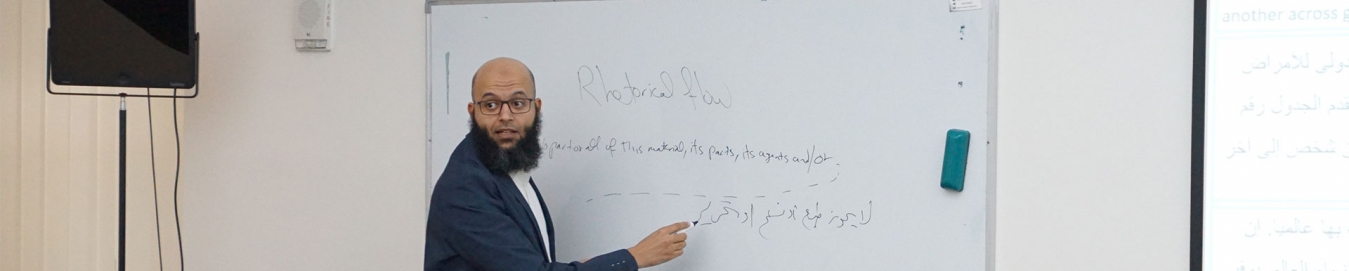 Rhetorical flow
part or all of this material, its parts, its agents and/or
لا يجوز طبع أو نسخ أو تحرير
another across
دولي للامراض
الجدول رقم
شخص الى آخر
بها عالميا. ان